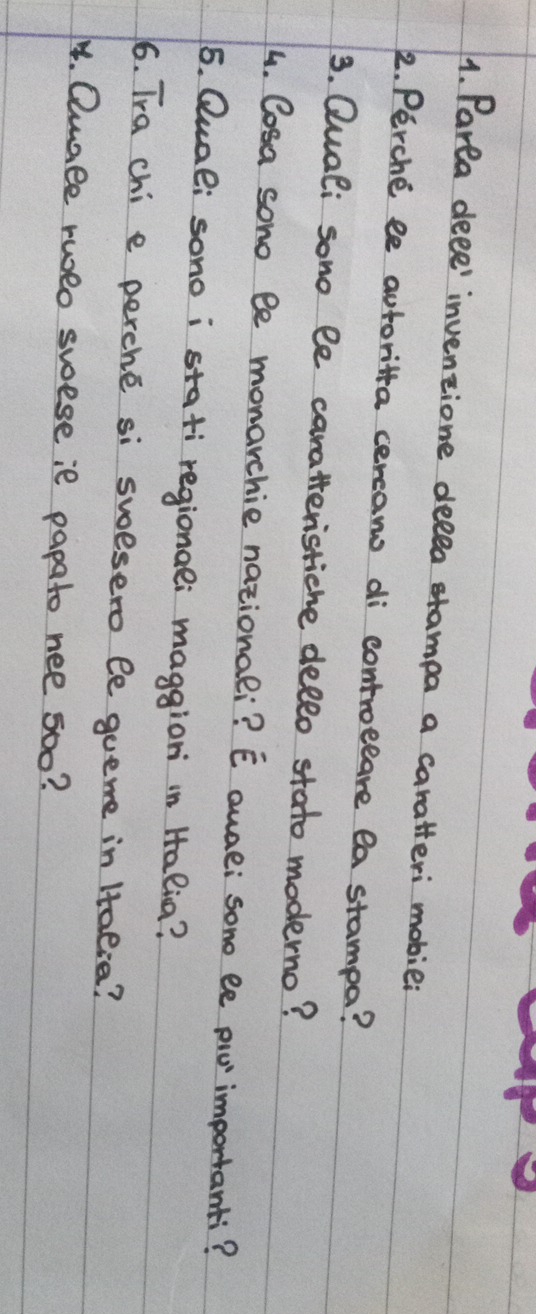 1. Parla dell'invenzione della stampa a caratteri mobili
2. Pérché le autoritta cercano di controllare la stampa?
3. Quali sono le caratteristiche dello stato moderno?
4. Cosa sono le monarchie nazionali? É quali sono le piu' importanti?
5. Quali sono i stati regionali maggiori in Italia?
6. Tra chi e perché si svolsero le guerre in Italia?
7. Quale ruolo svolse il papato nel 500?